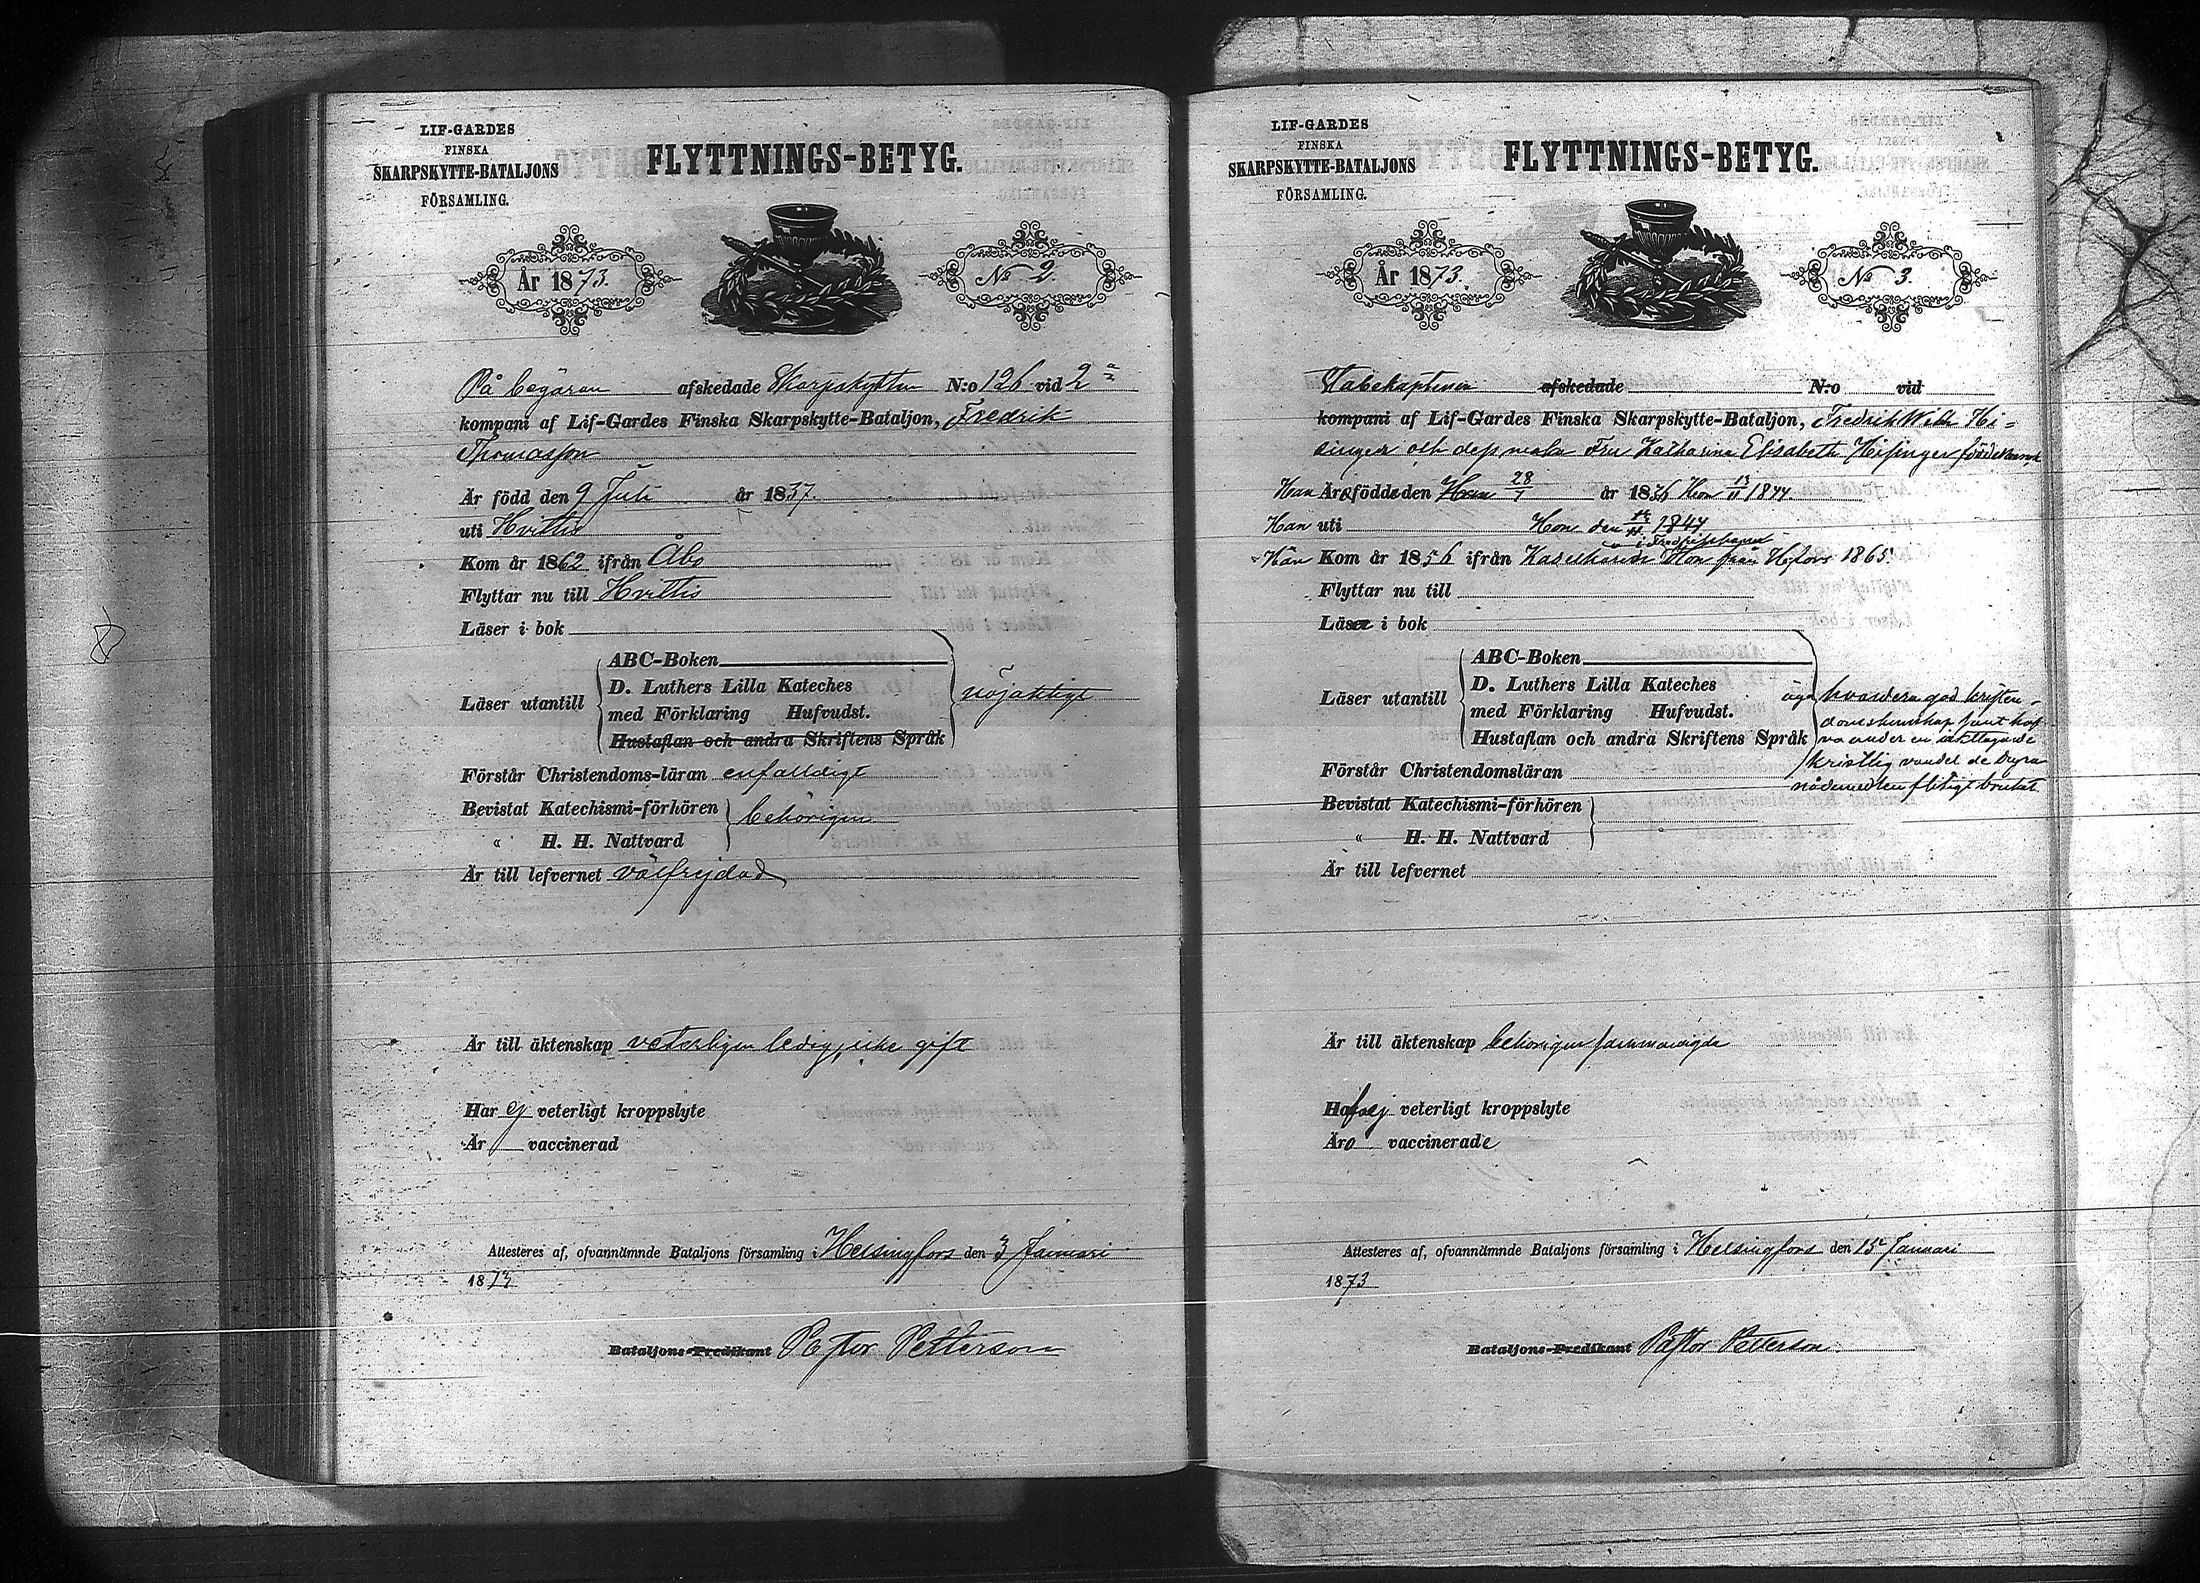 LIF-GARDES
FINSKA
SKARPSKYTTE-BATALJONS
FÖRSAMLING.
FLYTTNINGS-BETYG.
År 1873.
No 2.
På begäran afskedade Skarpskytten N:o 126 vid 2a
kompani af Lif-Gardes Finska Skarpskytte-Bataljon, Fredrik
Thomasson
Är född den 9 Juli år 1837.
uti Hvittis
Kom år 1862 ifrån Åbo
Flyttar nu till Hvittis
Läser i bok
ABC-Boken
D. Luthers Lilla Kateches
Läser utantill
med Förklaring Hufvudst.
nöjaktigt
Hustaflan och andra Skriftens Språk
Förstår Christendoms-läran enfaldigt
Bevistat Katechismi-förhören
behörigen
" H. H. Nattvard
Är till lefvernet välfrejdad
Är till äktenskap veterligen ledig, icke gift
Har ej veterligt kroppslyte
Är vaccinerad
Attesteres af, ofvannämnde Bataljons församling i Helsingfors den 3 Januari
1873
Bataljons-Predikant Pastor Petterson
LIF-GARDES
FINSKA
SKARPSKYTTE-BATALJONS
FÖRSAMLING.
FLYTTNINGS-BETYG.
År 1873.
No 3.
Stabskaptenen afskedade N:o vid
kompani af Lif-Gardes Finska Skarpskytte-Bataljon, Fredrik Wilh Hi=
singer och dess maka Fru Katharina Elisabeth Hisinger född
Han Äro födde den Han 28/1 år 1836 Hon 13/11 1844
Han uti Hon den 1844
i Fredrikshamn
Han Kom år 1856 ifrån Hon från Hfors 1865.
Flyttar nu till
Läser i bok
ABC-Boken
D. Luthers Lilla Kateches
Läser utantill
med Förklaring Hufvudst.
Hustaflan och andra Skriftens Språk
äga hvardera god kristen-
domskunskap samt haf-
va under en iakttagande
kristlig vandel de dyra
nådemedlen flitigt brukat
Förstår Christendomsläran
Bevistat Katechismi-förhören
" H. H. Nattvard
Är till lefvernet
Är till äktenskap behörigen sammanvigda
Hafva ej veterligt kroppslyte
Äro vaccinerade
Attesteres af, ofvannämnde Bataljons församling i Helsingfors den 15e Januari
1873
Bataljons-Predikant Pastor Petterson.